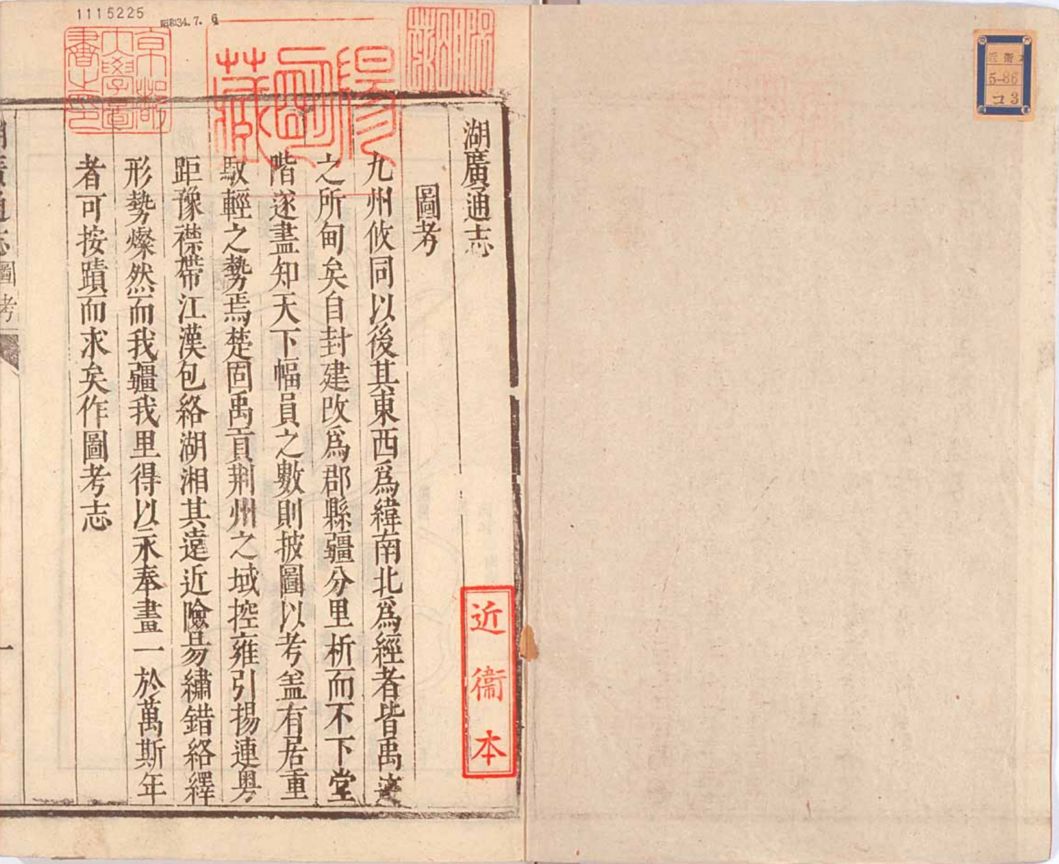 湖廣通志
圖考
九州攸同以後其東西爲緯南北爲經者皆禹迹
之所甸矣自封建改爲郡縣疆分里析而不下堂
階遂盡知天下幅員之數則披圖以考盖有居重
馭輕之勢焉楚固禹貢荆州之域控雍引揚連粤
距豫襟帶江漢包絡湖湘其遠近險易繡錯絡繹
形勢燦然而我疆我里得以永奉畫一於萬斯年
者可按蹟而求矣作圖考志
湖廣通志
圖考
一
近衞本
京都
大學圖
書之印
陽明
藏
1115225
昭和34.7.6
5-86
コ3